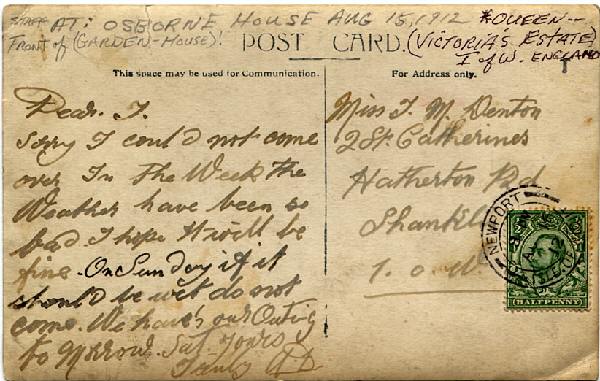 AT: OSBORNE HOUSE AUG 15, 1912 *QUEEN-
FRONT of (GARDEN-HOUSE)! (VICTORIA'S ESTATE)
I of W. ENGLAND
POST CARD.
This space may be used for Communication.
For Address only.
Dear. I.
Sorry I could not come
over In The Week the
Weather have been so
bad I hope it will be
fine On Sunday if it
should be wet do not
come. We have's our Outing
to Morrow. Sat yours
Truly
Miss I. M. Denton
2 St. Catherines
Hatherton Rd
Shankl
I. o. W
NEWPORT
HALFPENNY